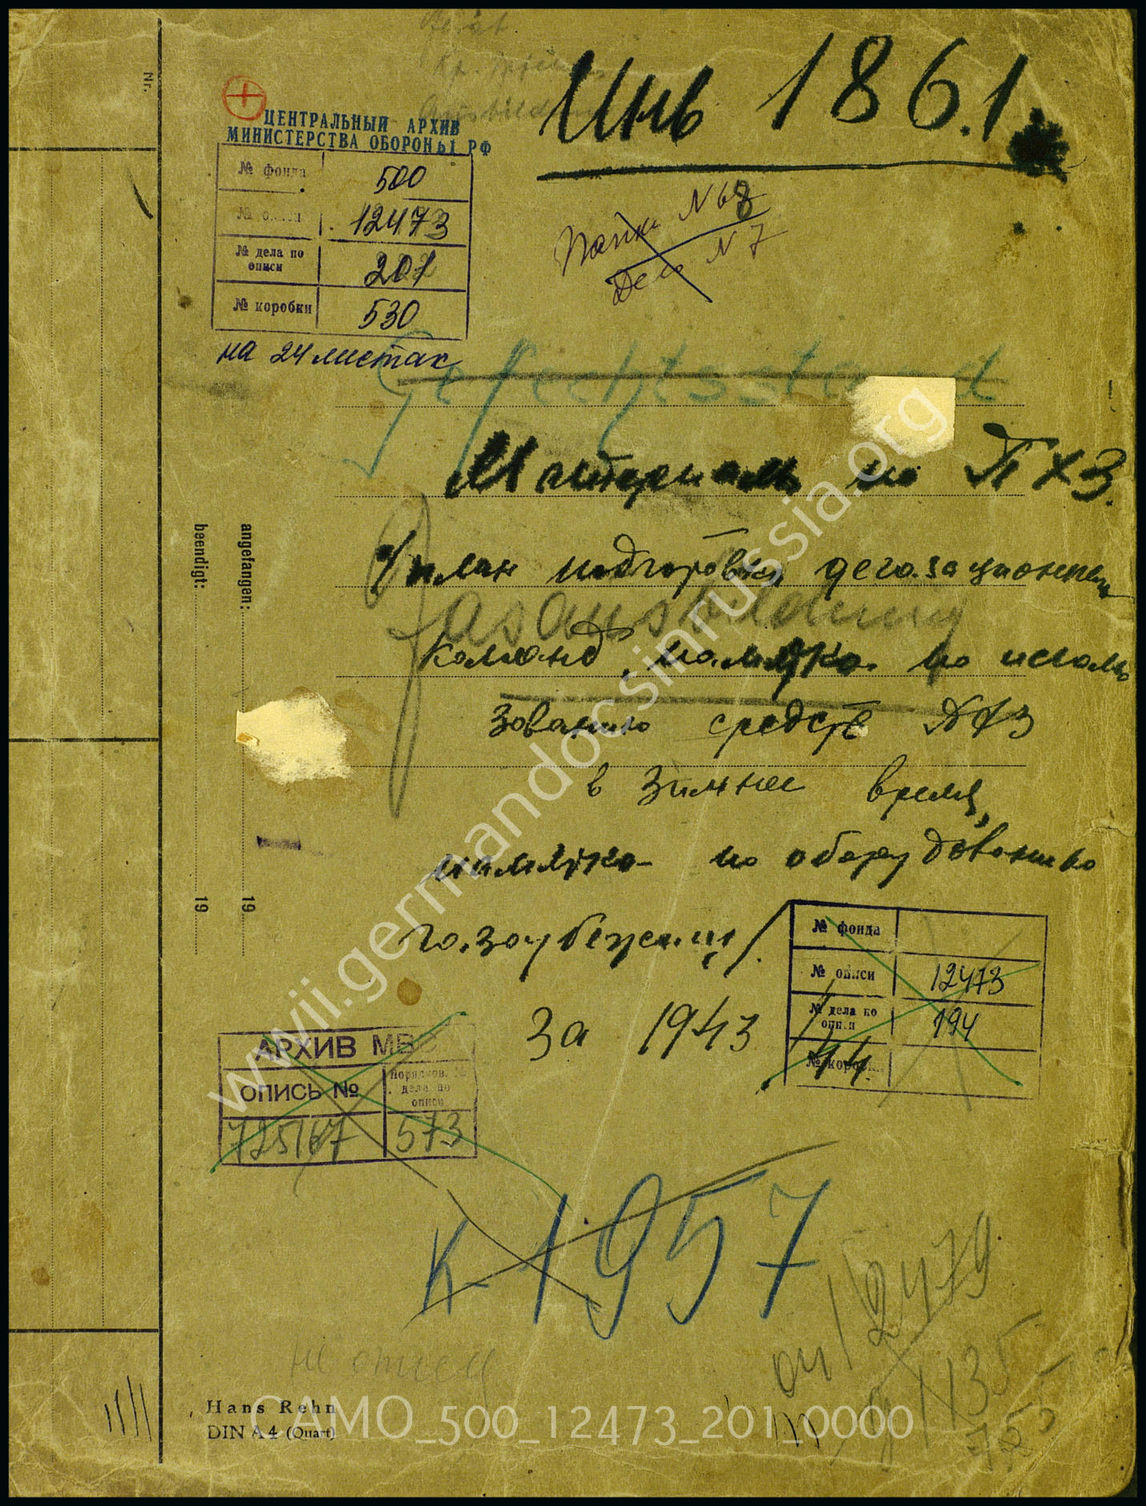 Инв 1861.
Nr.
ЦЕНТРАЛЬНЫЙ АРХИВ
МИНИСТЕРСТВА ОБОРОНЫ РФ
№ фонда 500
№ описи 12473
№ дела по описи 201
№ коробки 530
на 24 листах
Папка N 68
Дело N 7
Gefechtsstand
Материалы по ПХЗ.
(план подготовки дегазационных
Gasausbildung
команд, памятка по исполь
зованию средств ПХЗ
в зимнее время,
памятка по оборудованию
газоубежищ).
за 1943
angefangen: 19
beendigt: 19
№ фонда
№ описи 12473
№ дела по описи 194
№ короб... 44
АРХИВ МВС
ОПИСЬ №
Порядков. № дела по описи
725167 573
К-1957
оп 12479
д 1135
755
Hans Rehn
DIN A 4 (Quart)
wwii.germandocsinrussia.org
CAMO_500_12473_201_0000